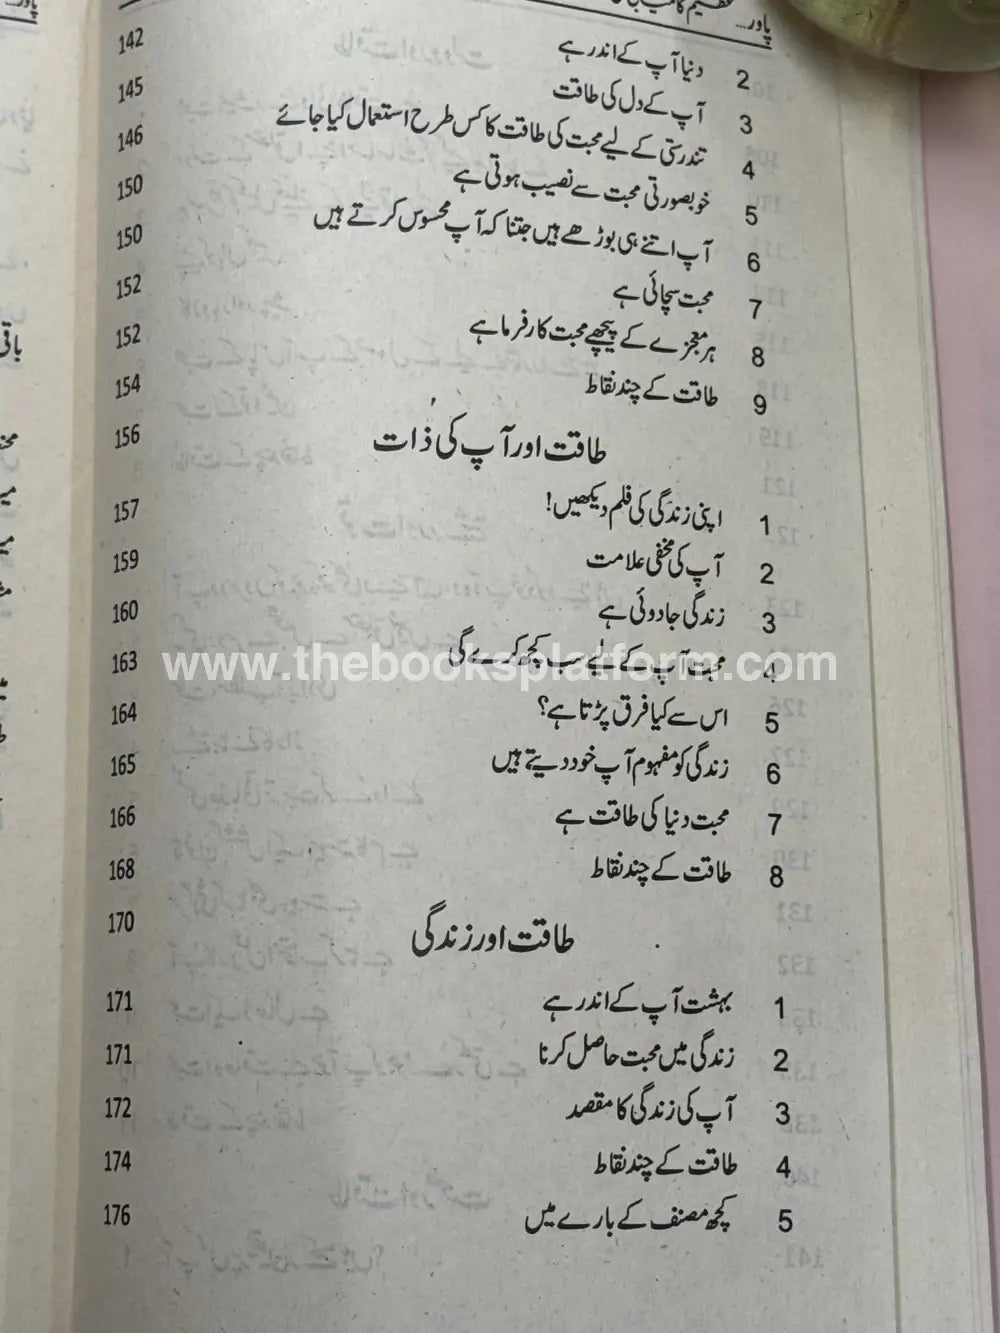 پاور...
2 دنیا آپ کے اندر ہے 142
3 آپ کے دل کی طاقت 145
4 تندرستی کے لیے محبت کی طاقت کا کس طرح استعمال کیا جائے 146
5 خوبصورتی محبت سے نصیب ہوتی ہے 150
6 آپ اتنے ہی بوڑھے ہیں جتنا کہ آپ محسوس کرتے ہیں 150
7 محبت سچائی ہے 152
8 ہر معجزے کے پیچھے محبت کارفرما ہے 152
9 طاقت کے چند نقاط 154
طاقت اور آپ کی ذات 156
1 اپنی زندگی کی فلم دیکھیں! 157
2 آپ کی مخفی علامت 159
3 زندگی جادوئی ہے 160
4 محبت آپ کے لیے سب کچھ کرے گی 163
www.thebooksplatform.com
5 اس سے کیا فرق پڑتا ہے؟ 164
6 زندگی کو مفہوم آپ خود دیتے ہیں 165
7 محبت دنیا کی طاقت ہے 166
8 طاقت کے چند نقاط 168
طاقت اور زندگی 170
1 بہشت آپ کے اندر ہے 171
2 زندگی میں محبت حاصل کرنا 171
3 آپ کی زندگی کا مقصد 172
4 طاقت کے چند نقاط 174
5 کچھ مصنف کے بارے میں 176